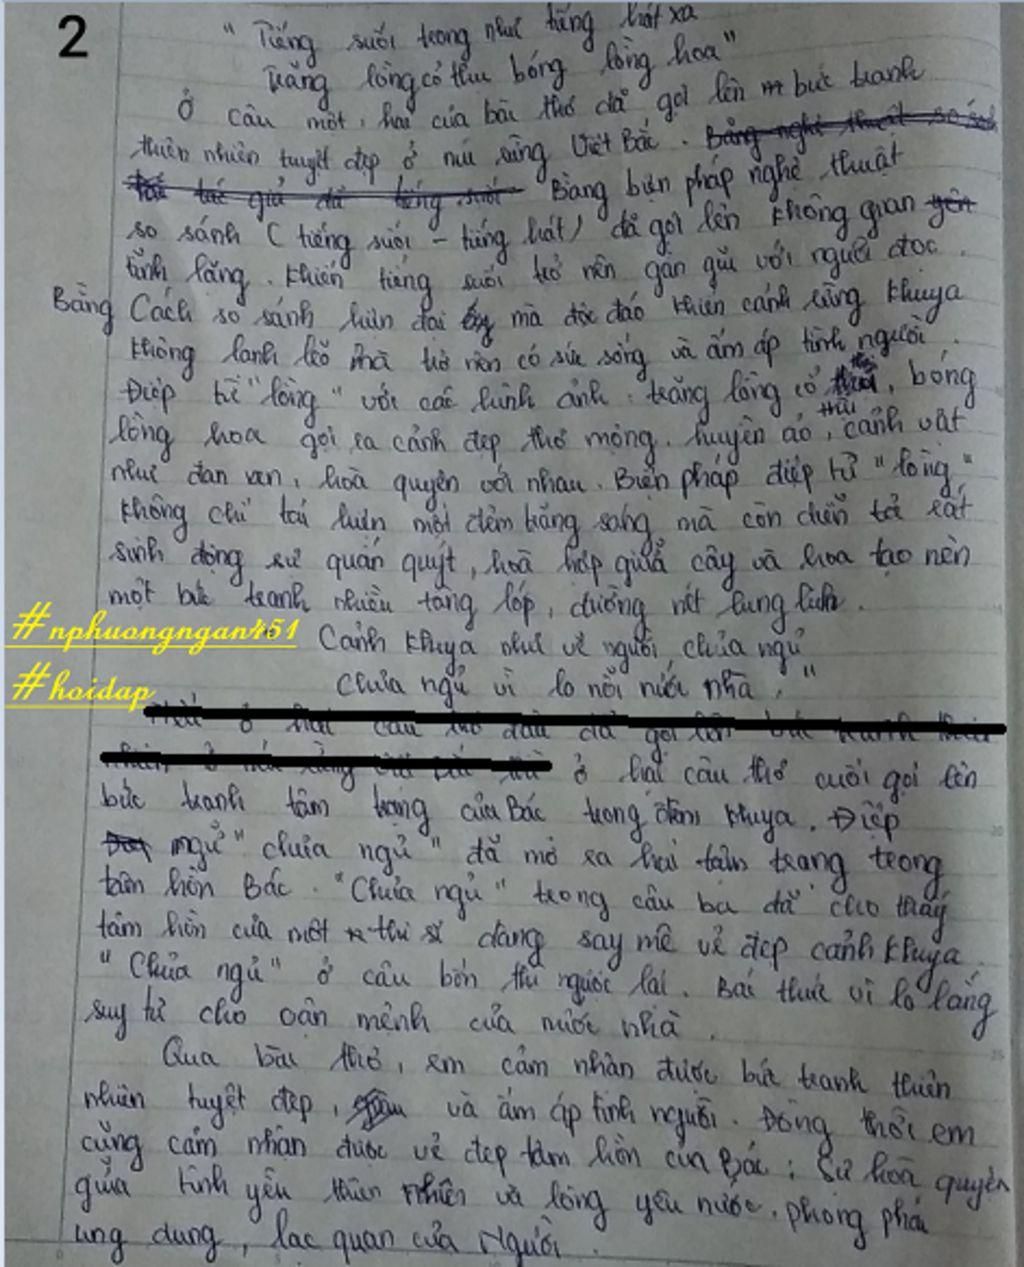 2
" Tiếng suối trong như tiếng hát xa
Trăng lồng cổ thụ bóng lồng hoa"
Ở câu một, hai của bài thơ đã gợi lên bức tranh
thiên nhiên tuyệt đẹp ở núi rừng Việt Bắc. Bằng nghệ thuật so sánh
tác giả đã tiếng suối Bằng biện pháp nghệ thuật
so sánh ( tiếng suối - tiếng hát) đã gợi lên không gian yên
tĩnh lặng. Khiến tiếng suối trở nên gần gũi với người đọc.
Bằng Cách so sánh hiện đại mà độc đáo khiến cảnh rừng khuya
không lạnh lẽo mà trở nên có sức sống và ấm áp tình người.
Điệp từ "lồng" với các hình ảnh: trăng lồng cổ thụ, bóng
lồng hoa gợi ra cảnh đẹp thơ mộng, huyền ảo, cảnh vật
như đan xen, hoà quyện với nhau. Biện pháp điệp từ "lồng"
không chỉ tái hiện một đêm trăng sáng mà còn diễn tả rất
sinh động sự quấn quýt, hoà hợp giữa cây và hoa tạo nên
một bức tranh nhiều tầng lớp, đường nét lung linh.
#nphuongngan451
" Cảnh khuya như vẽ người chưa ngủ
#hoidap
Chưa ngủ vì lo nỗi nước nhà."
ở hai câu thơ cuối gợi lên
bức tranh tâm trạng của Bác trong đêm khuya. Điệp
ngữ "chưa ngủ" đã mở ra hai tâm trạng trong
tâm hồn Bác. "Chưa ngủ" trong câu ba đã cho thấy
tâm hồn của một thi sĩ đang say mê vẻ đẹp cảnh khuya.
"Chưa ngủ" ở câu bốn thì ngược lại. Bác thức vì lo lắng
suy tư cho vận mệnh của nước nhà.
Qua bài thơ, em cảm nhận được bức tranh thiên
nhiên tuyệt đẹp, và ấm áp tình người. Đồng thời em
cũng cảm nhận được vẻ đẹp tâm hồn của Bác: Sự hoà quyện
giữa tình yêu thiên nhiên và lòng yêu nước, phong thái
ung dung, lạc quan của Người.